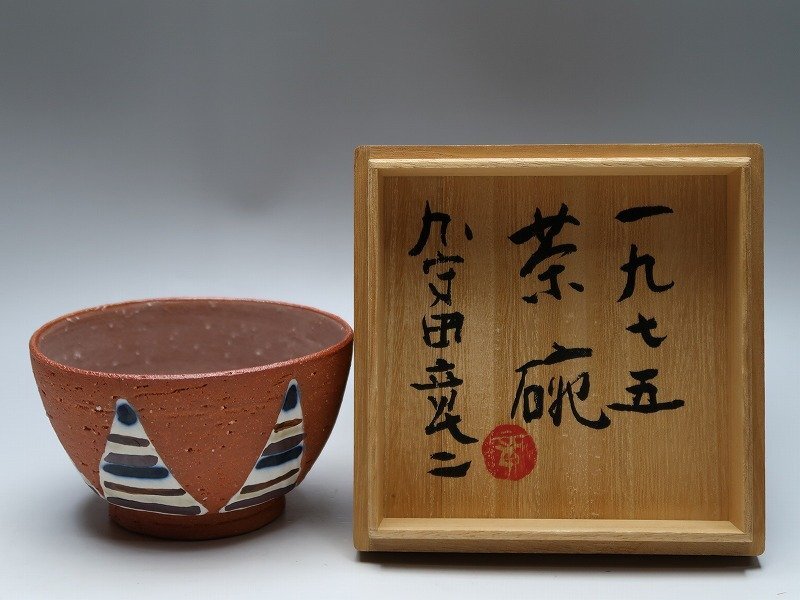 一九七五
茶碗
加守田章二